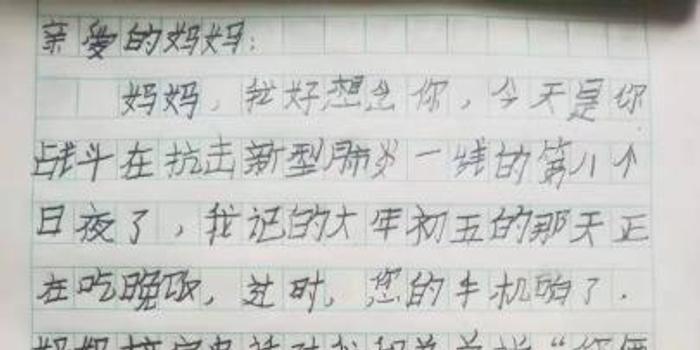 亲爱的妈妈：
妈妈，我好想念你，今天是你
战斗在抗击新型肺炎一线的第八个
日夜了，我记的大年初五的那天正
在吃晚饭，这时，您的手机响了．